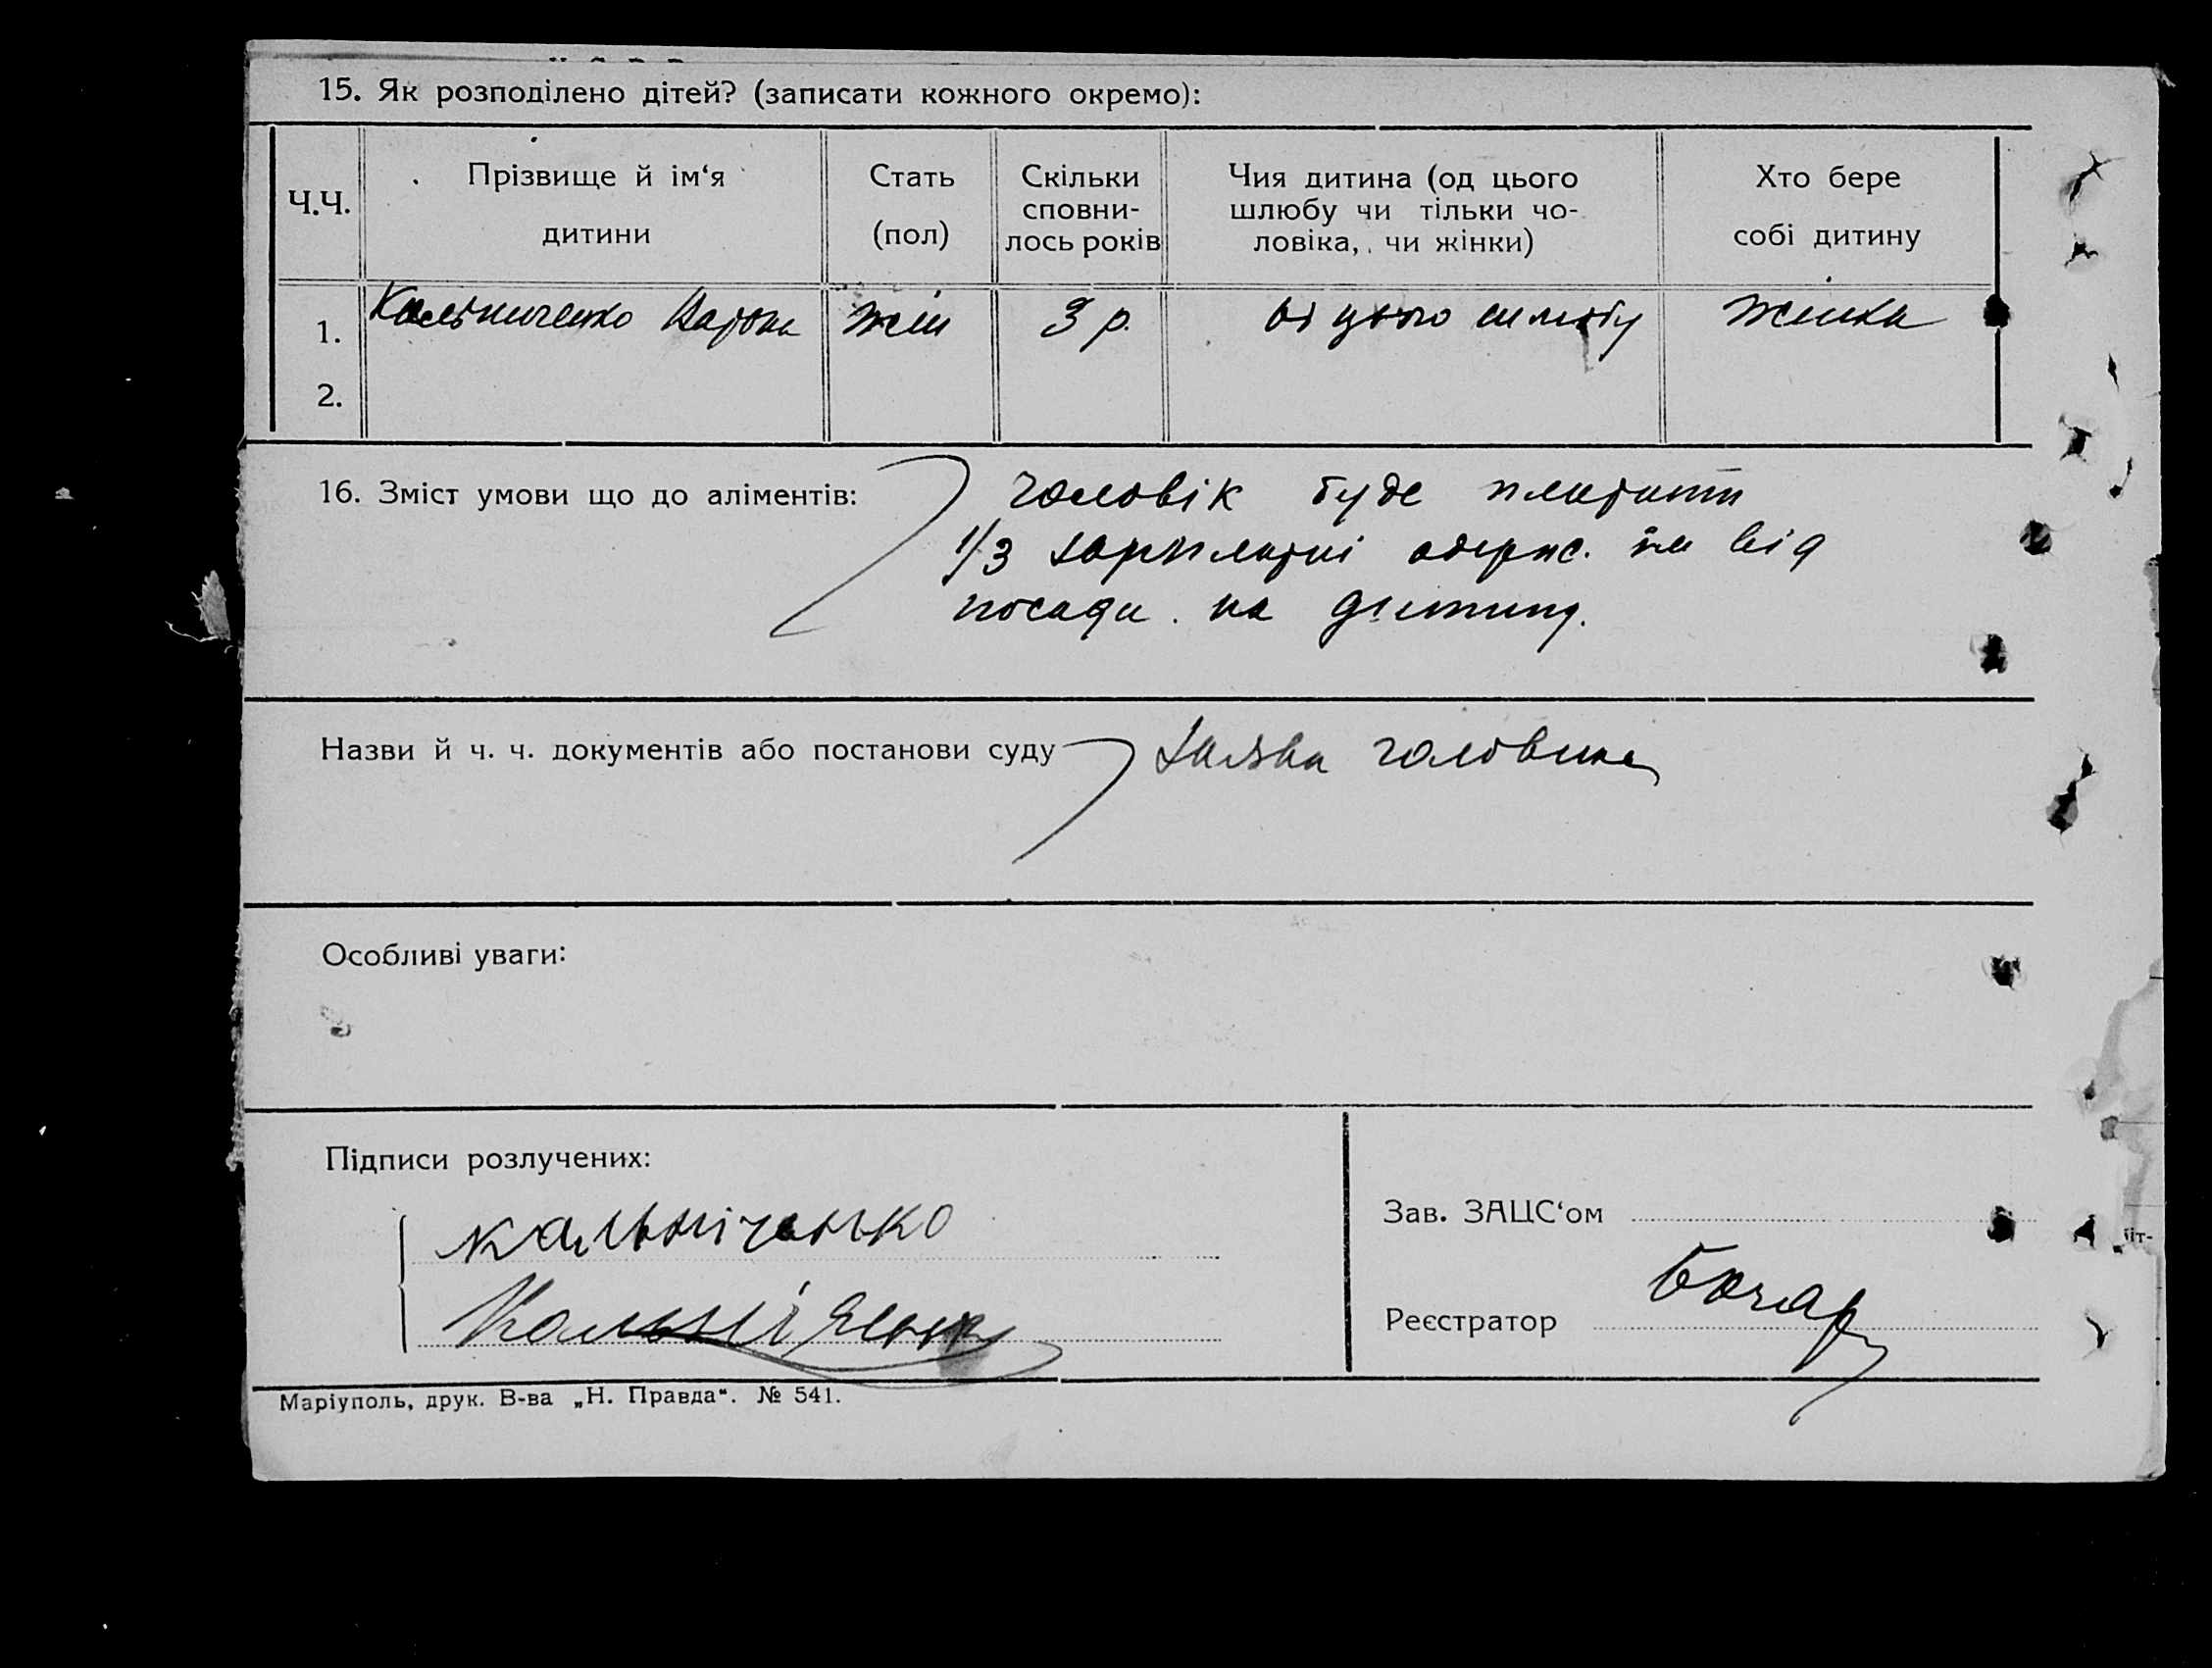 15. Як розподілено дітей? (записати кожного окремо):
Ч.Ч. Прізвище й ім‘я дитини Стать (пол) Скільки сповни-лось років Чия дитина (од цього шлюбу чи тільки чо-ловіка, чи жінки) Хто бере собі дитину
1. Кальниченко жін 3 р. від цього шлюбу жінка
2.
16. Зміст умови що до аліментів: чоловік буде платити
1/3 зарплатні одерж. їм від
посади на дитину.
Назви й ч. ч. документів або постанови суду заява чоловіка
Особливі уваги:
Підписи розлучених:
Кальніченко
Зав. ЗАЦС‘ом
Реєстратор
Маріуполь, друк. В-ва „Н. Правда“. № 541.